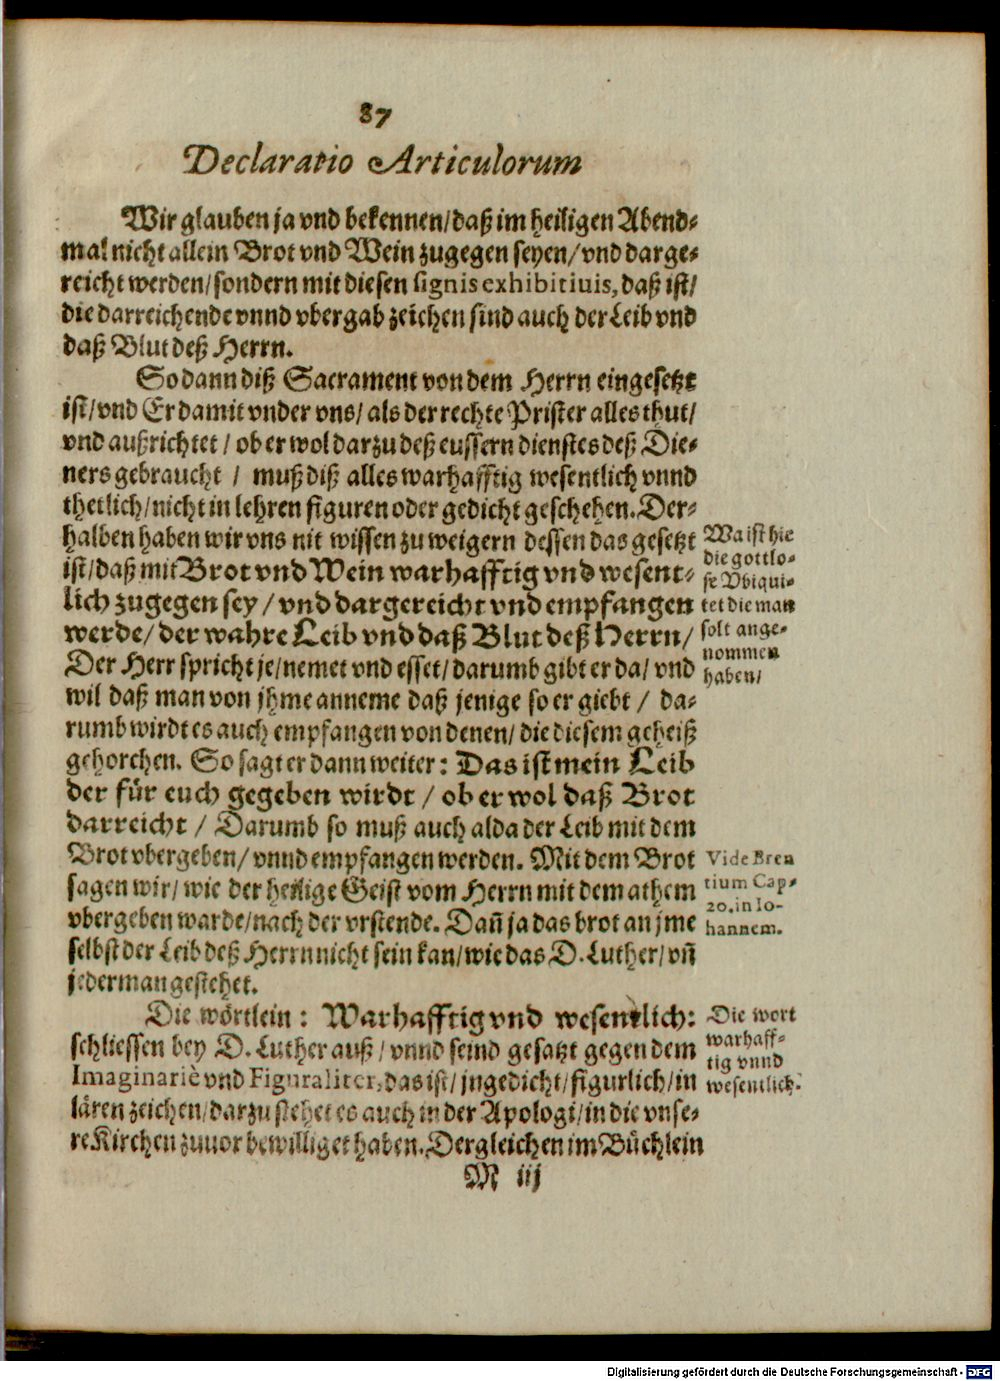 87
Declaratio Articulorum
Wir glauben ja vnd bekennen/daß im heiligen Abend-
mal nicht allein Brot vnd Wein zugegen seyen/vnd darge-
reicht werden/sondern mit diesen signis exhibitiuis, daß ist/
die darreichende vnnd vbergab zeichen sind auch der Leib vnd
daß Blut deß Herrn.
So dann diß Sacrament von dem Herrn eingesetzt
ist/vnd Er damit vnder vns/als der rechte Prister alles thut/
vnd außrichtet/ob er wol darzu deß eussern dienstes deß Die-
ners gebraucht / muß diß alles warhafftig wesentlich vnnd
thetlich/nicht in lehren figuren oder gedicht geschehen. Der-
halben haben wir vns nit wissen zu weigern dessen das gesetzt
ist/daß mit Brot vnd Wein warhafftig vnd wesent-
lich zugegen sey/vnd dargereicht vnd empfangen
werde/der wahre Leib vnd daß Blut deß Herrn/
Der Herr spricht je/nemet vnd esset/darumb gibt er da/vnd
wil daß man von jhme anneme daß jenige so er giebt / da-
rumb wirdt es auch empfangen von denen/die diesem geheiß
gehorchen. So sagt er dann weiter: Das ist mein Leib
der für euch gegeben wirdt / ob er wol daß Brot
darreicht / Darumb so muß auch alda der Leib mit dem
Brot vbergeben/vnnd empfangen werden. Mit dem Brot
sagen wir/wie der heilige Geist vom Herrn mit dem athem
vbergeben warde/nach der vrstende. Dañ ja das brot an jme
selbst der Leib deß Herrn nicht sein kan/wie das D. Luther/vñ
jederman gestehet.
Die wörtlein: Warhafftig vnd wesentlich:
schliessen bey D. Luther auß/vnnd seind gesatzt gegen dem
Imaginariè vnd Figuraliter, das ist/jngedicht/figurlich/in
lären zeichen/darzu stehet es auch in der Apologi/in die vnse-
re Kirchen zuuor bewilliget haben. Dergleichen im Büchlein
M iij
Wa ist hie
die gottlo-
se Vbiqui-
tet die man
solt ange-
nommen
haben/
Vide Bren
tium Cap-
20. in Io-
hannem.
Die wort
warhaff-
tig vnnd
wesentlich.
Digitalisierung gefördert durch die Deutsche Forschungsgemeinschaft - DFG